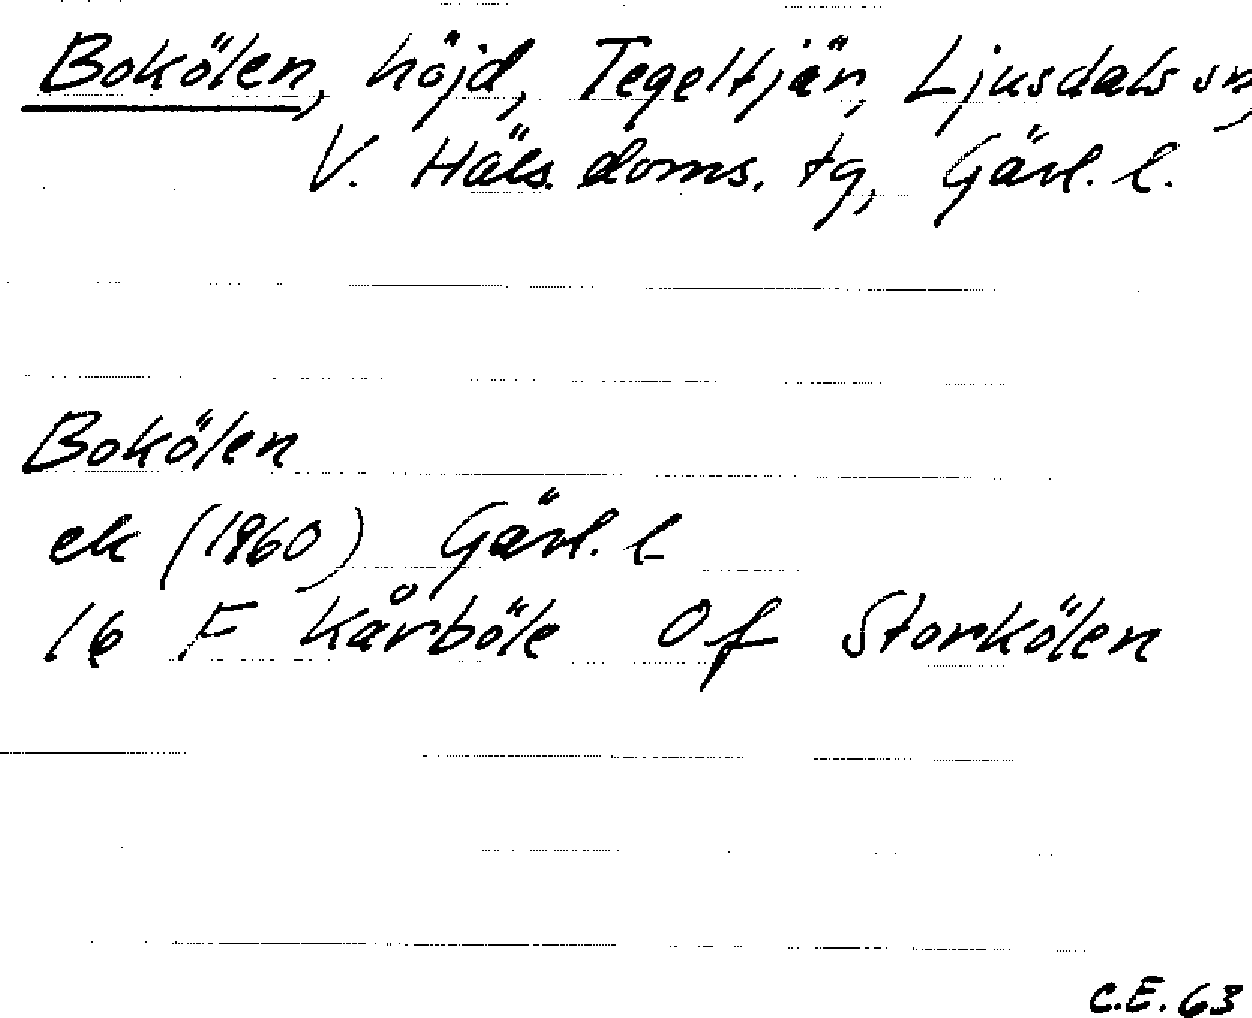 Bokölen, höjd, Tegeltjän, Ljusdals sn,
V. Häls. doms. tg, Gävl. l.
Bokölen
ek (1960) Gävl. l
16 F Kårböle Of Storkölen
C.E. 63